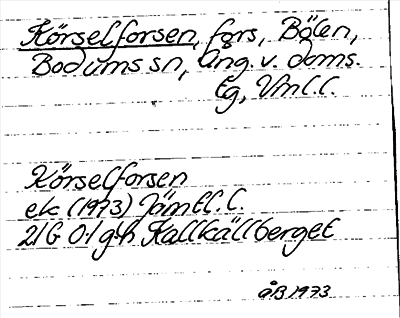 Körselforsen, fors, Bölen,
Bodums sn, Ång. v. doms.
lg, Vnl.l.
Körselforsen
ek (1973) Jämtl. l.
21G 0-1 g-h Kallkällberget
åB 1973